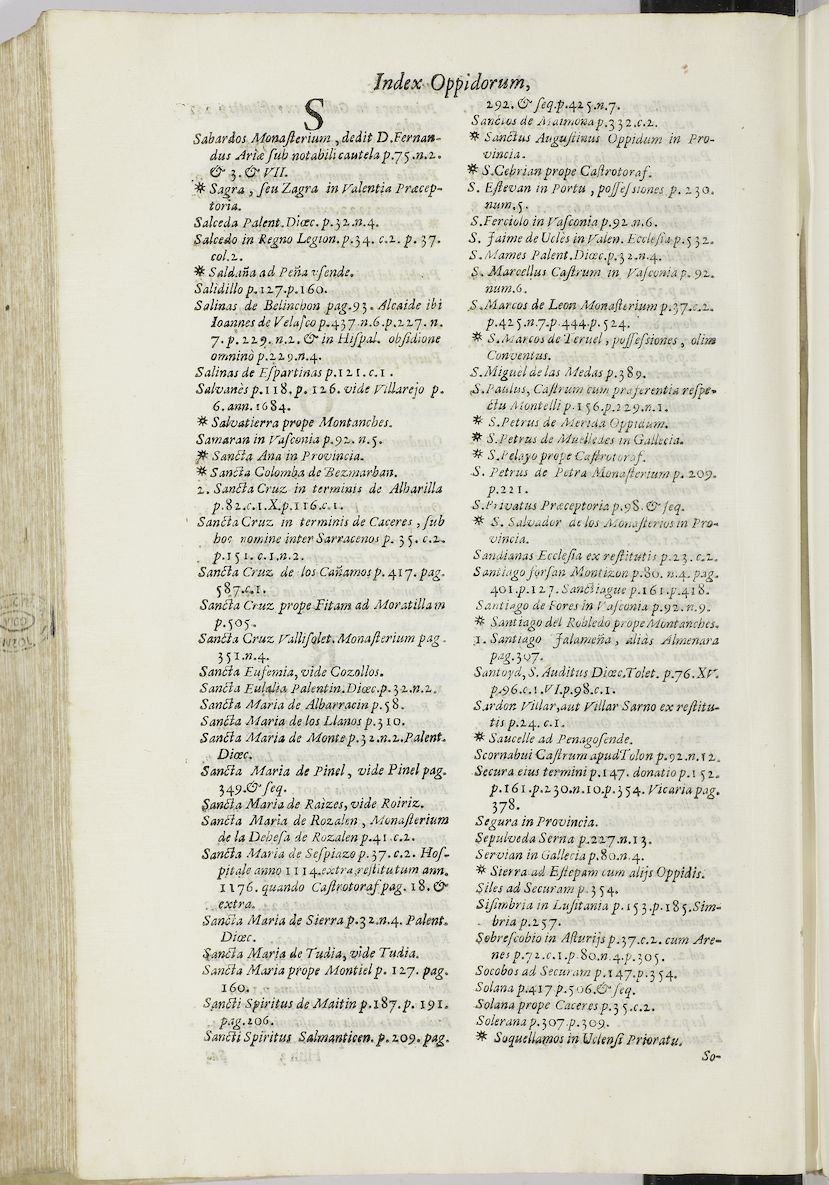 Index Oppidorum,
S
Sabardos Monaſterium, dedit D.Fernan-
dus Ariæ ſub notabili cautela p.75.n.2.
& 3. & VII.
* Sagra, ſeu Zagra in Valentia Præcep-
toria.
Salceda Palent.Diœc.p.32.n.4.
Salcedo in Regno Legion.p.34. c.2. p. 37.
col.2.
* Saldaña ad Peña vſende.
Salidillo p.127.p.160.
Salinas de Belinchon pag.93. Alcaide ibi
Ioannes de Velaſco p.437.n.6.p.227. n.
7. p. 229. n.2. & in Hiſpal. obſidione
omninò p.229.n.4.
Salinas de Eſpartinas p.121.c.1.
Salvanès p.118.p. 126. vide Villarejo p.
6. ann.1684.
* Salvatierra prope Montanches.
Samaran in Vaſconia p.92. n.5.
* Sancta Ana in Provincia.
* Sancta Colomba de Bezmarban.
2. Sancta Cruz in terminis de Albarilla
p.82.c.1.X.p.116.c.1.
Sancta Cruz in terminis de Caceres, ſub
hoc nomine inter Sarracenos p. 35. c.2.
p.151. c.1.n.2.
Sancta Cruz de los Cañamos p. 417. pag.
587.c.1.
Sancta Cruz prope Fitam ad Moratillam
p.505.
Sancta Cruz Valliſolet. Monaſterium pag.
351.n.4.
Sancta Eufemia, vide Cozollos.
Sancta Eulalia Palentin.Diœc.p.32.n.2.
Sancta Maria de Albarracin p.58.
Sancta Maria de los Llanos p.310.
Sancta Maria de Monte p.32.n.2.Palent.
Diœc.
Sancta Maria de Pinel, vide Pinel pag.
349.& ſeq.
Sancta Maria de Raizes, vide Roiriz.
Sancta Maria de Rozalen, Monaſterium
de la Deheſa de Rozalen p.41.c.2.
Sancta Maria de Seſpiazo p.37.c.2. Hoſ-
pitale anno 1114.extra,reſtitutum ann.
1176. quando Caſtrotoraf pag. 18. &
extra.
Sancta Maria de Sierra p.32.n.4. Palent.
Diœc.
Sancta Maria de Tudia, vide Tudia.
Sancta Maria prope Montiel p. 127. pag.
160.
Sancti Spiritus de Maitin p.187.p. 191.
pag.206.
Sancti Spiritus Salmanticen. p. 209. pag.
292. & ſeq.p.425.n.7.
Sanctos de Maimona p.332.c.2.
* Sanctus Auguſtinus Oppidum in Pro-
vincia.
* S.Cebrian prope Caſtrotoraf.
S. Eſtevan in Portu, poſſeſsiones p. 230.
num.5.
S.Ferciolo in Vaſconia p.92.n.6.
S. Jaime de Uclès in Valen. Eccleſia p.532.
S.Mames Palent.Diœc.p.32.n.4.
S. Marcellus Caſtrum in Vaſconia p. 92.
num.6.
S.Marcos de Leon Monaſterium p.37.c.2.
p.425.n.7.p.444.p.524.
* S.Marcos de Teruel, poſſeſsiones, olim
Conventus.
S.Miguel de las Medas p.389.
S.Paulus, Caſtrum cum præferentia reſpe-
ctu Montelli p.156.p.229.n.1.
* S.Petrus de Merida Oppidum.
* S.Petrus de Muelledes in Gallecia.
* S.Pelayo prope Caſtrotoraf.
S. Petrus de Petra Monaſterium p. 209.
p.221.
S.Privatus Præceptoria p.98.& ſeq.
* S. Salvador de los Monaſterios in Pro-
vincia.
Sandianas Eccleſia ex reſtitutis p.23. c.2.
Santiago forſan Montizon p.80. n.4. pag.
401.p.127. Sanctiague p.161.p.418.
Santiago de Fores in Vaſconia p.92.n.9.
* Santiago del Robledo prope Montanches.
1. Santiago Jalameña, aliàs Almenara
pag.307.
Santoyd, S. Auditus Diœc.Tolet. p.76.XV.
p.96.c.1.VI.p.98.c.1.
Sardon Villar,aut Villar Sarno ex reſtitu-
tis p.24. c.1.
* Saucelle ad Penagoſende.
Scornabui Caſtrum apud Tolon p.92.n.12.
Secura eius termini p.147. donatio p.152.
p.161.p.230.n.10.p.354. Vicaria pag.
378.
Segura in Provincia.
Sepulveda Serna p.227.n.13.
Servian in Gallecia p.80.n.4.
* Sierra ad Eſtepam cum alijs Oppidis.
Siles ad Securam p.354.
Siſimbria in Luſitania p.153.p.185.Sim-
bria p.257.
Sobreſcobio in Aſturijs p.37.c.2. cum Are-
nes p.72.c.1.p.80.n.4.p.305.
Socobos ad Securam p.147.p.354.
Solana p.417.p.506.& ſeq.
Solana prope Caceres p.35.c.2.
Solerana p.307.p.309.
* Soquellamos in Uclenſi Prioratu.
So-